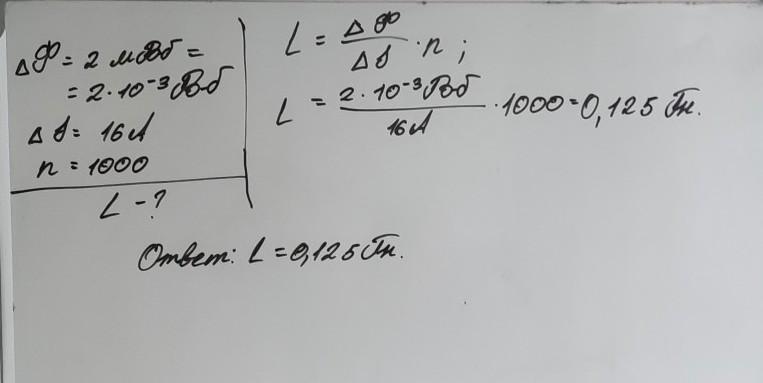 ΔФ = 2 мВб =
= 2·10⁻³ Вб
ΔI = 16 А
n = 1000
L - ?
L = ΔФ/ΔI · n ;
L = 2·10⁻³ Вб/16 А · 1000 = 0,125 Гн.
Ответ: L = 0,125 Гн.